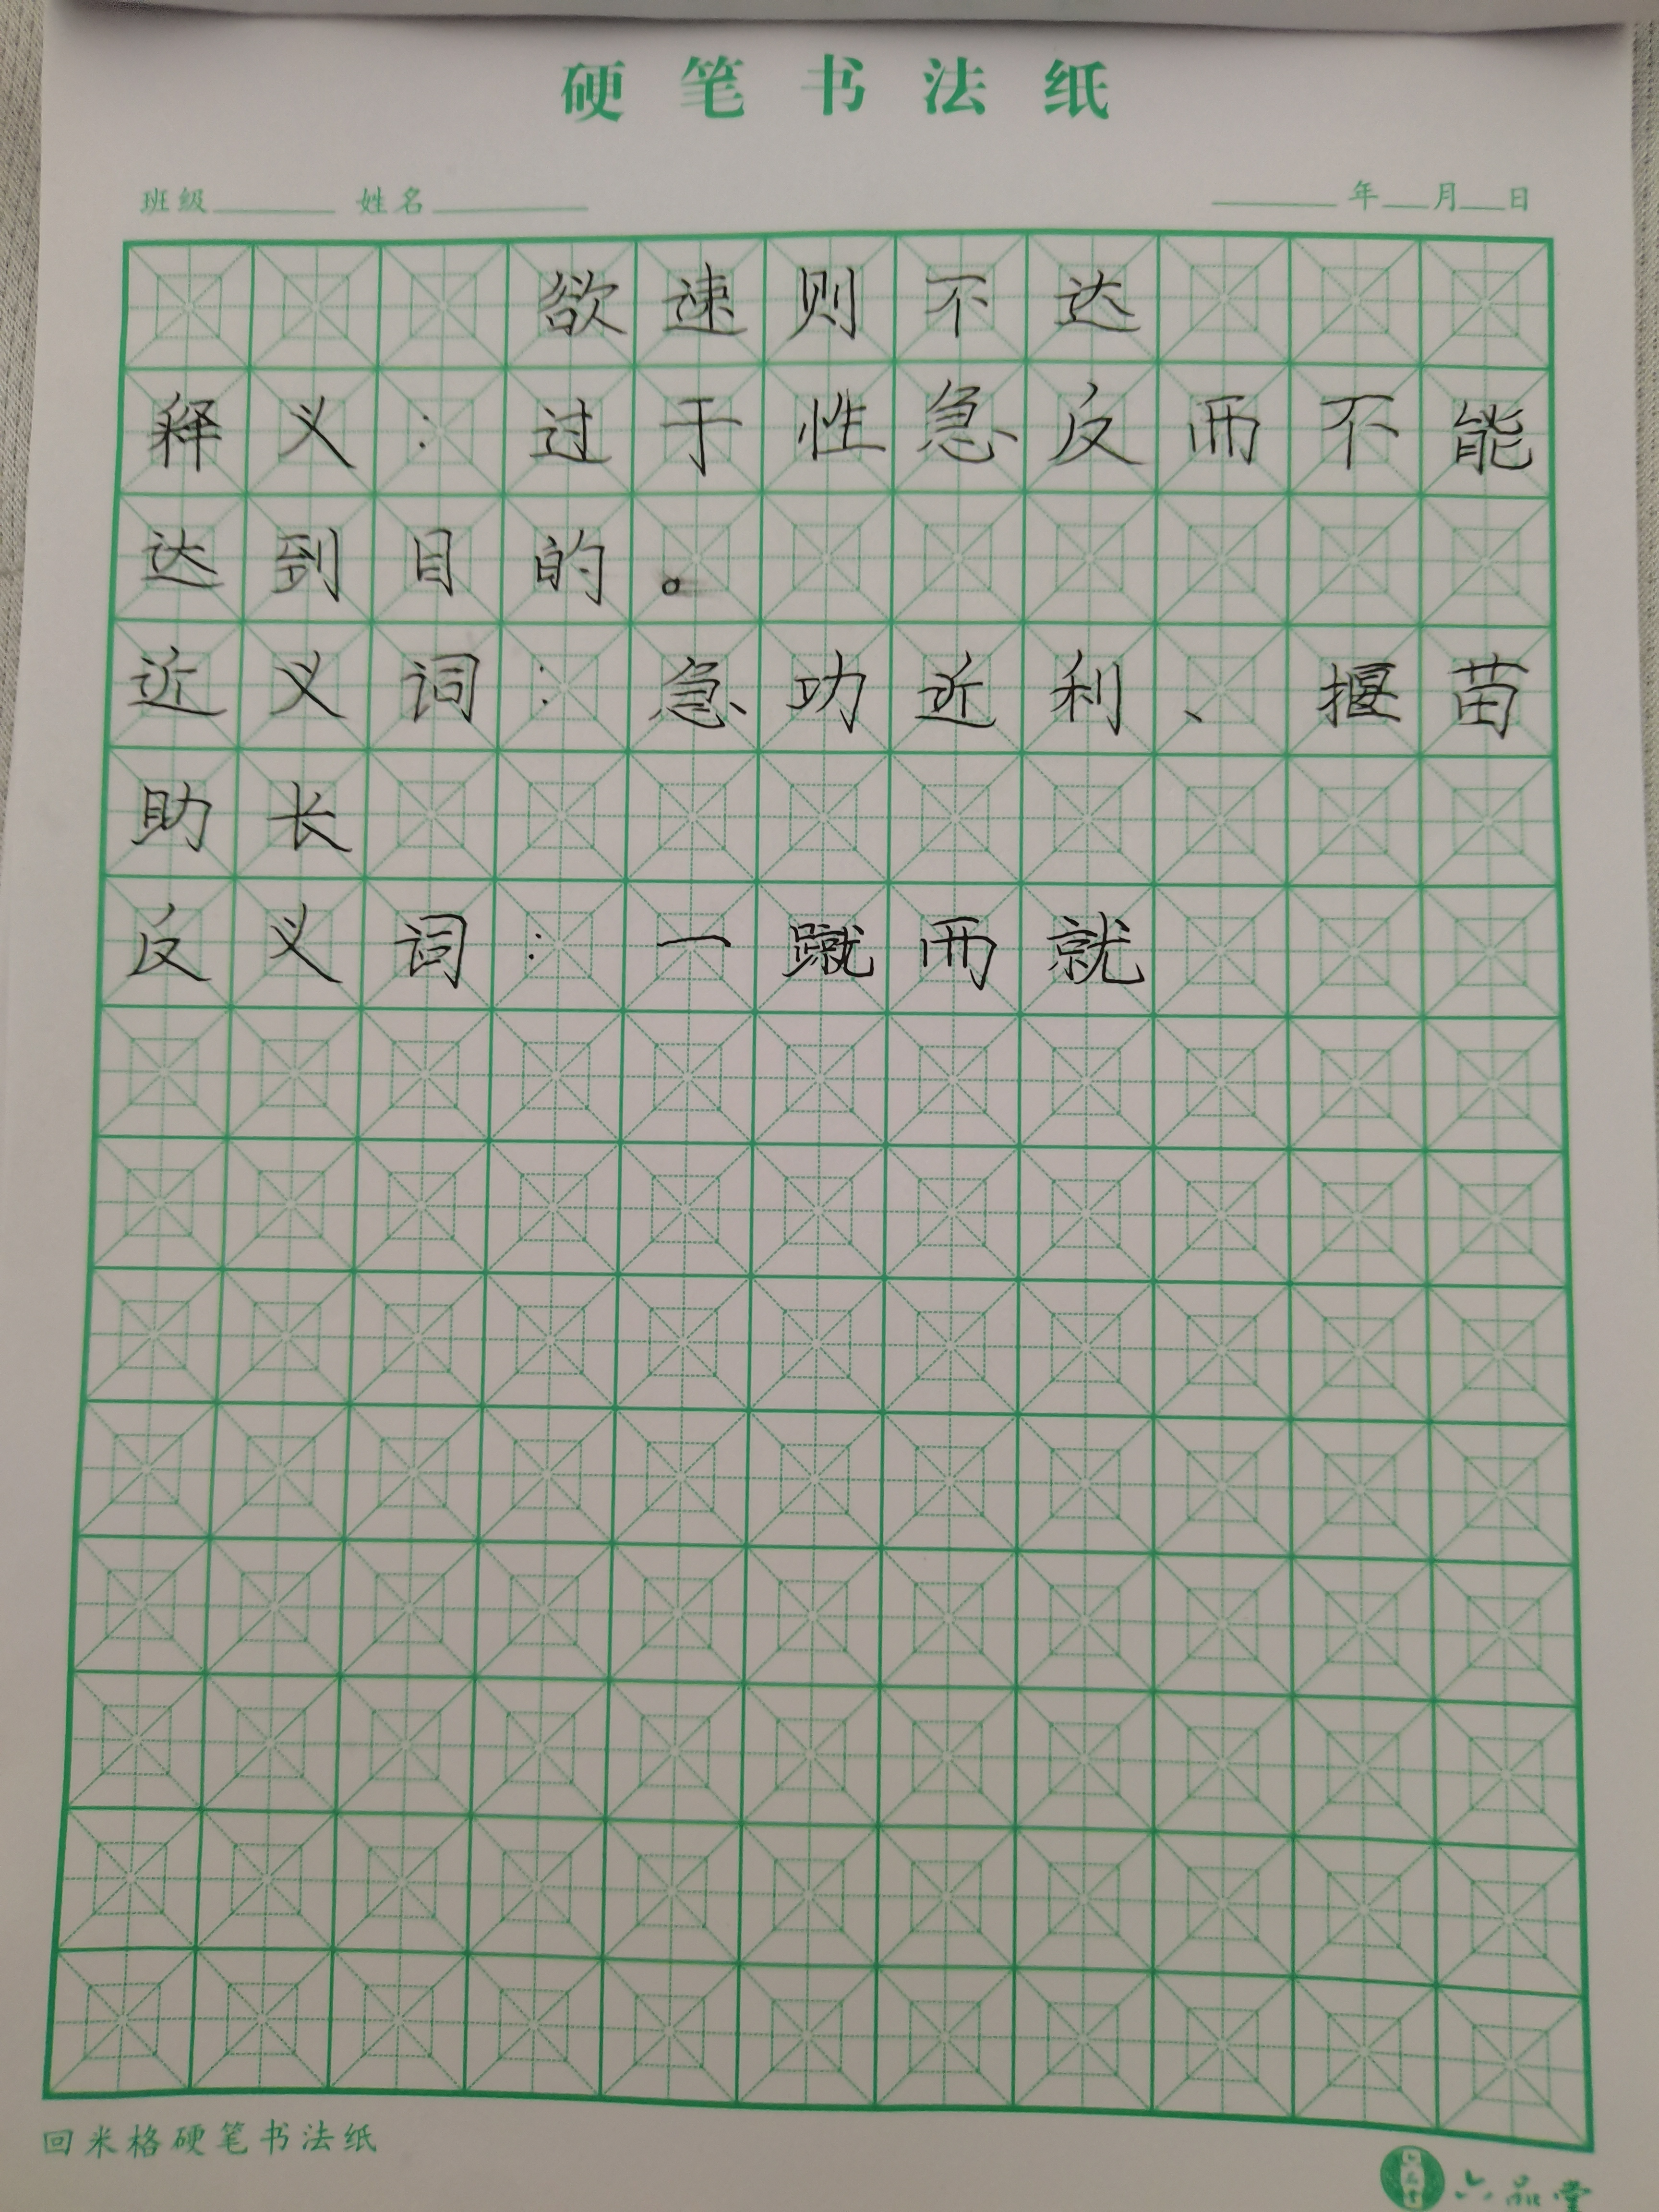 硬笔书法纸
班级 姓名 年 月 日
欲速则不达
释义：过于性急反而不能
达到目的。
近义词：急功近利、揠苗
助长
反义词：一蹴而就
回米格硬笔书法纸
六品堂